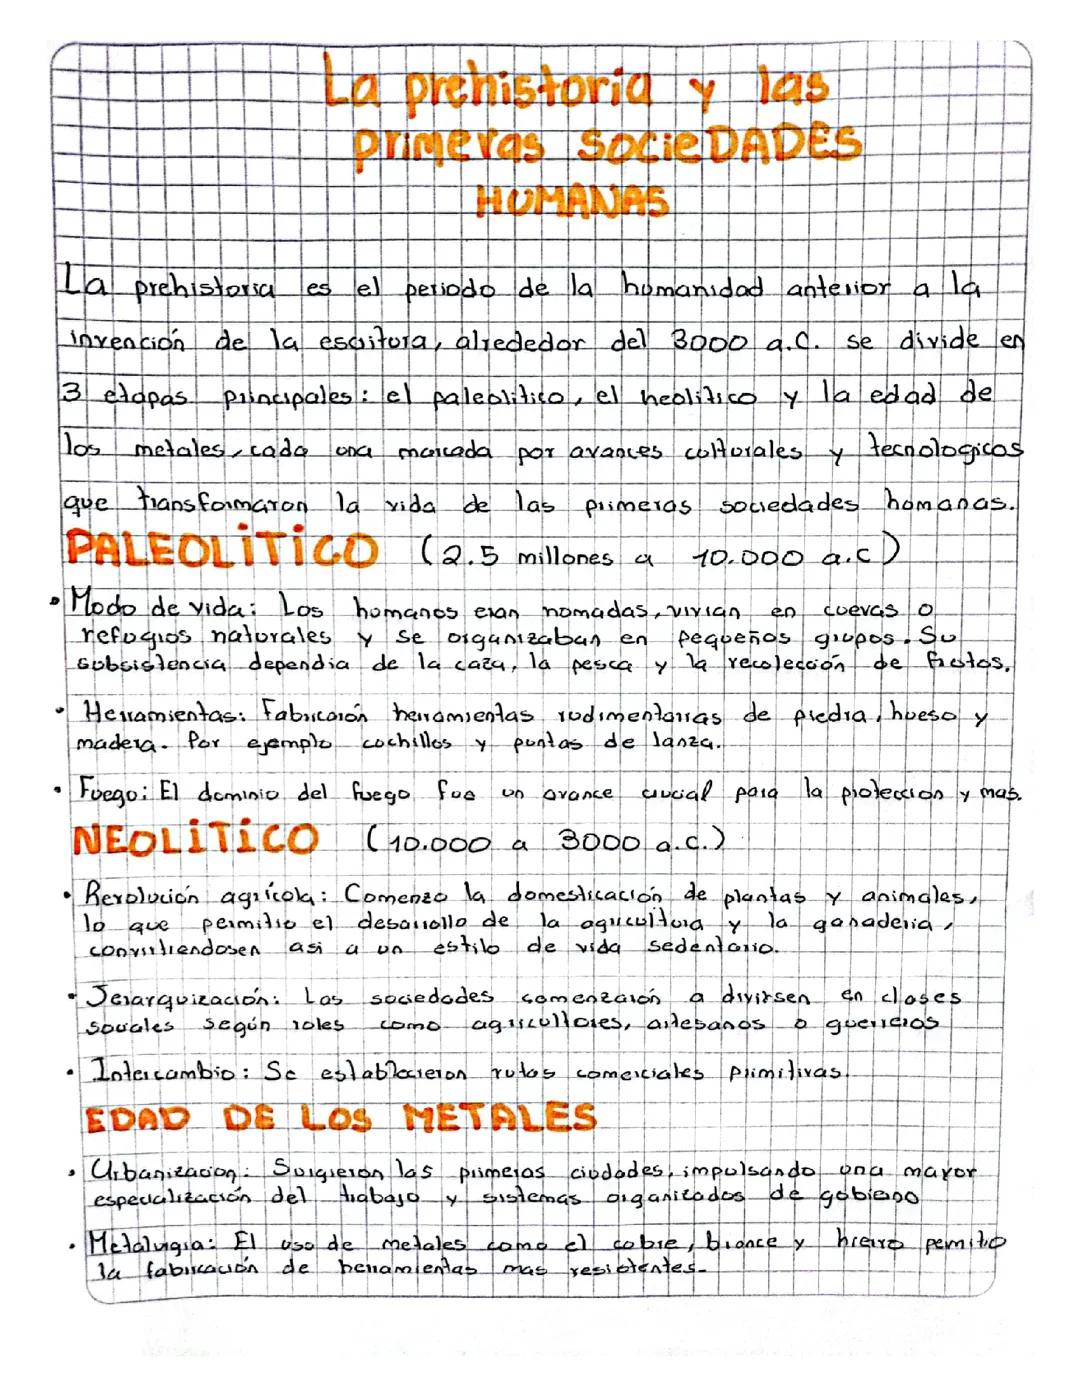 La prehistoria y las
primeras SOCieDADES
HUMANAS
La prehistoria es el periodo de la humanidad anterior a la
invención de la escritura, alrededor del 3000 a.C. se divide en
3 etapas principales: el paleolitico, el neolitico y la edad de
los metales, cada una marcada por avances culturales y tecnologicos
que transformaron la vida de las primeras sociedades humanas.
PALEOLiTiCO (2.5 millones a 10.000 a.c)
• Modo de vida: Los humanos eran nomadas, vivian en cuevas o
refugios naturales y se organizaban en pequeños grupos. Su
subsistencia dependia de la caza, la pesca y la recolección de frutos.
• Herramientas: Fabricarón herramientas rudimentarias de piedra, hueso y
madera. Por ejemplo cochillos y puntas de lanza.
• Fuego: El dominio del fuego fue un avance crucial para la proteccion y mas.
NEOLiTiCO (10.000 a 3000 a.c.)
• Revolución agrícola: Comenzo la domesticación de plantas y animales,
lo que permitio el desarrollo de la agricultura y la ganaderia,
convirtiendosen asi a un estilo de vida sedentario.
• Jerarquización: Las sociedades comenzarón a divirsen en clases
sociales según roles como agricultores, artesanos o guerreros
• Intercambio: Se establecieron rutas comerciales primitivas.
EDAD DE LOS METALES
• Urbanizacion: Surgieron las primeras ciudades, impulsando una mayor
especialización del trabajo y sistemas organizados de gobierno
• Metalurgia: El uso de metales como el cobre, bronce y hierro permitio
la fabricación de herramientas mas resistentes.